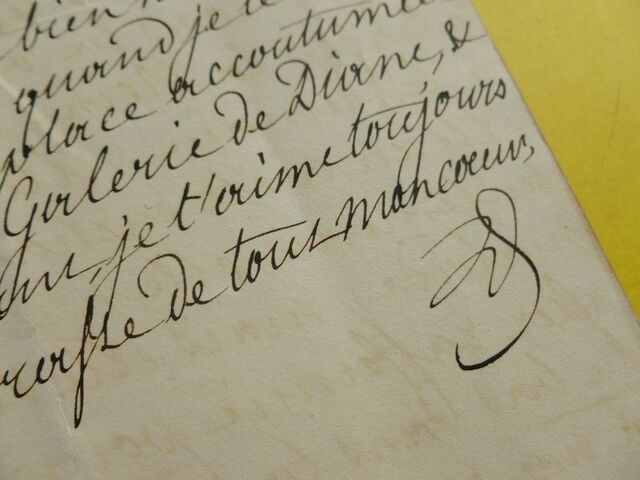 bien
quand je te
place accoutumée
Galerie de Diane, &
je t'aime toujours
rasse de tout mon coeur,